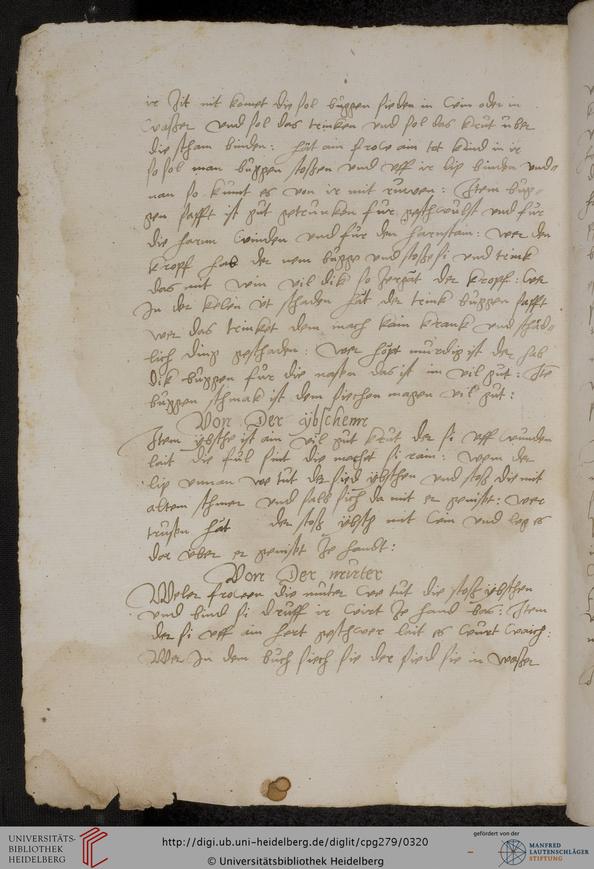 ir zit nit komet die sol buggen sieden in win oder in
wasser vnd sol das trinken vnd sol das krut vber
die scham binden : hat ain frow ain tot kind in ir
so sol man buggen stossen vnd vff ir lip binden vnd
man so kumt es von ir mit ruwen : Item bug
gen safft ist gut getrunken fur geschwulst vnd fur
die harm winden vnd fur den harnstain : wer den
kropf hab der nem buggen vnd stosse si vnd trink
das mit win vil dik so zergat der kropf : wer
In der kelen it schaden hat der trink buggen safft
wer das trinket dem mach kain krank vnd schäd
lich ding geschaden : wer höpt mürdig ist der hab
dik buggen fur die nasen das ist im vil gut : Ite
buggen schmak ist dem siechen magen vil gut :
Von Der ybschem
Item ybsche ist ain vil gut krut der si vff wunden
leit die ful sint die machet si rain : wem der
lip innan we tut der sied ybschen vnd stoß die mit
altem schmer vnd salb sich da mit er genißt : wer
trusen hat der stoß ybsch mit win vnd leg es
dar vber er genißt ze handt :
Von Der muter
Weler frowen die muter we tut die stoß ybschen
vnd bind si druff ir wirt ze hand bas : Item
der si vff ain hert geschwer leit es wurt waich :
Wer In dem buch siech sie der sied sie in wasser
UNIVERSITÄTS-
BIBLIOTHEK
HEIDELBERG
http://digi.ub.uni-heidelberg.de/diglit/cpg279/0320
© Universitätsbibliothek Heidelberg
gefördert von der
MANFRED
LAUTENSCHLÄGER
STIFTUNG